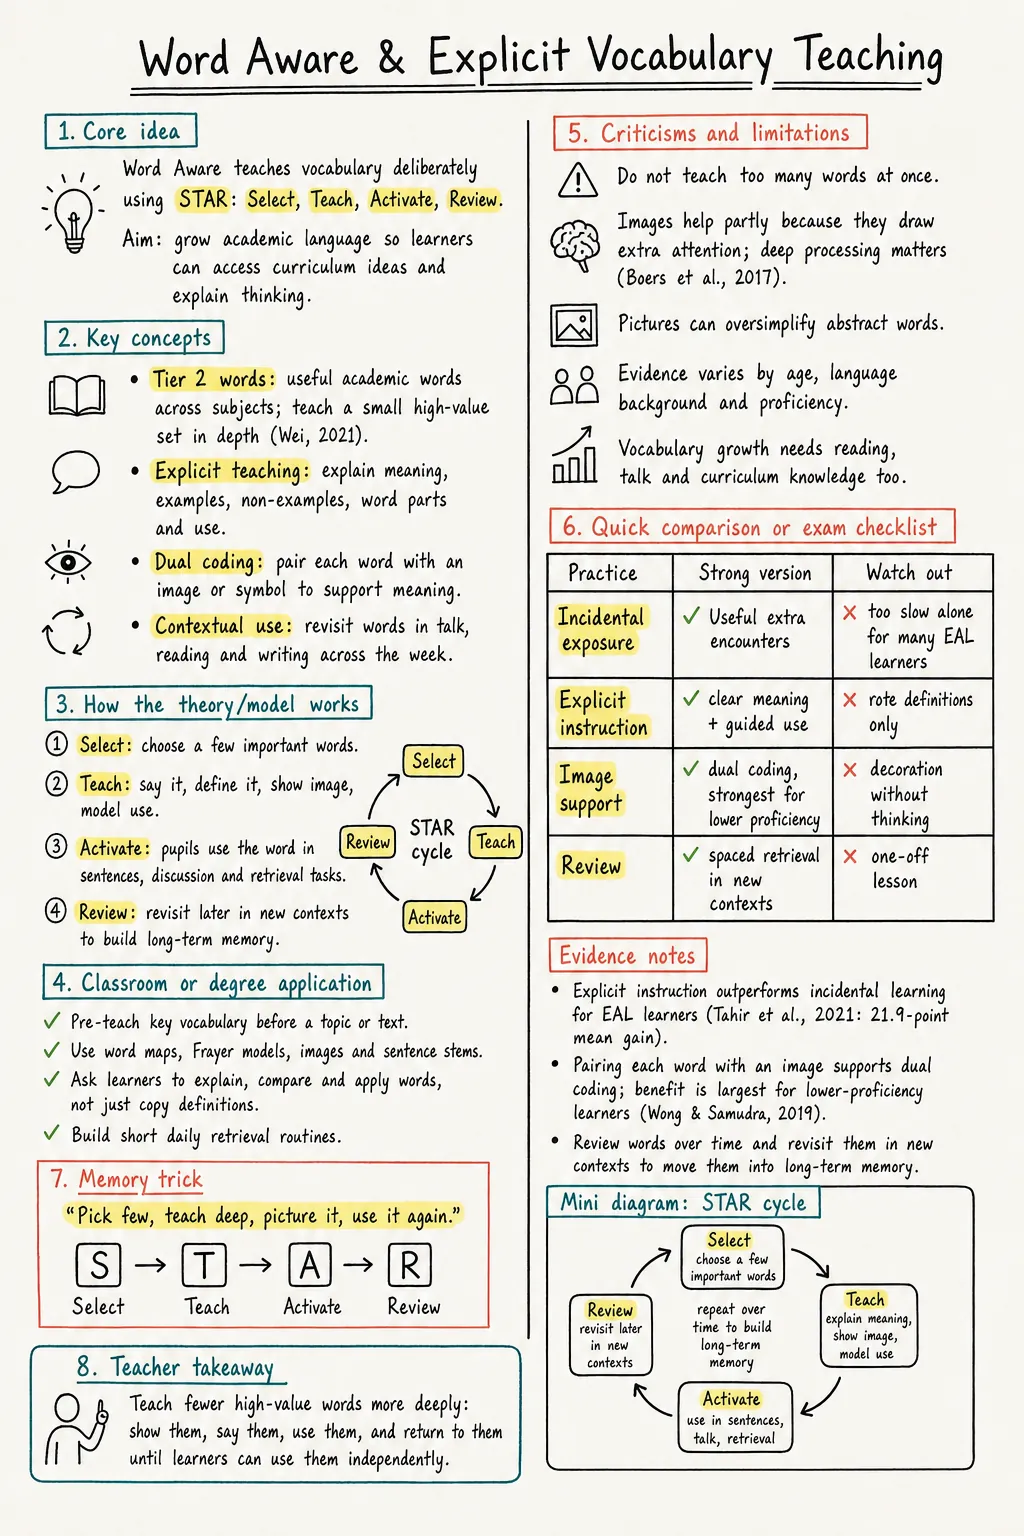 Word Aware & Explicit Vocabulary Teaching
1. Core idea
Word Aware teaches vocabulary deliberately
using STAR: Select, Teach, Activate, Review.
Aim: grow academic language so learners
can access curriculum ideas and
explain thinking.
2. Key concepts
• Tier 2 words: useful academic words
across subjects; teach a small high-value
set in depth (Wei, 2021).
• Explicit teaching: explain meaning,
examples, non-examples, word parts
and use.
• Dual coding: pair each word with an
image or symbol to support meaning.
• Contextual use: revisit words in talk,
reading and writing across the week.
3. How the theory/model works
1 Select: choose a few important words.
2 Teach: say it, define it, show image,
model use.
3 Activate: pupils use the word in
sentences, discussion and retrieval tasks.
4 Review: revisit later in new contexts
to build long-term memory.
Select
Teach
Activate
Review
STAR
cycle
4. Classroom or degree application
✓ Pre-teach key vocabulary before a topic or text.
✓ Use word maps, Frayer models, images and sentence stems.
✓ Ask learners to explain, compare and apply words,
not just copy definitions.
✓ Build short daily retrieval routines.
7. Memory trick
"Pick few, teach deep, picture it, use it again."
S → T → A → R
Select Teach Activate Review
8. Teacher takeaway
Teach fewer high-value words more deeply:
show them, say them, use them, and return to them
until learners can use them independently.
5. Criticisms and limitations
Do not teach too many words at once.
Images help partly because they draw
extra attention; deep processing matters
(Boers et al., 2017).
Pictures can oversimplify abstract words.
Evidence varies by age, language
background and proficiency.
Vocabulary growth needs reading,
talk and curriculum knowledge too.
6. Quick comparison or exam checklist
Practice Strong version Watch out
Incidental
exposure
✓ Useful extra
encounters
✗ too slow alone
for many EAL
learners
Explicit
instruction
✓ clear meaning
+ guided use
✗ rote definitions
only
Image
support
✓ dual coding,
strongest for
lower proficiency
✗ decoration
without
thinking
Review
✓ spaced retrieval
in new
contexts
✗ one-off
lesson
Evidence notes
• Explicit instruction outperforms incidental learning
for EAL learners (Tahir et al., 2021: 21.9-point
mean gain).
• Pairing each word with an image supports dual
coding; benefit is largest for lower-proficiency
learners (Wong & Samudra, 2019).
• Review words over time and revisit them in new
contexts to move them into long-term memory.
Mini diagram: STAR cycle
Select
choose a few
important words
Teach
explain meaning,
show image,
model use
Activate
use in sentences,
talk, retrieval
Review
revisit later
in new
contexts
repeat over
time to build
long-term
memory